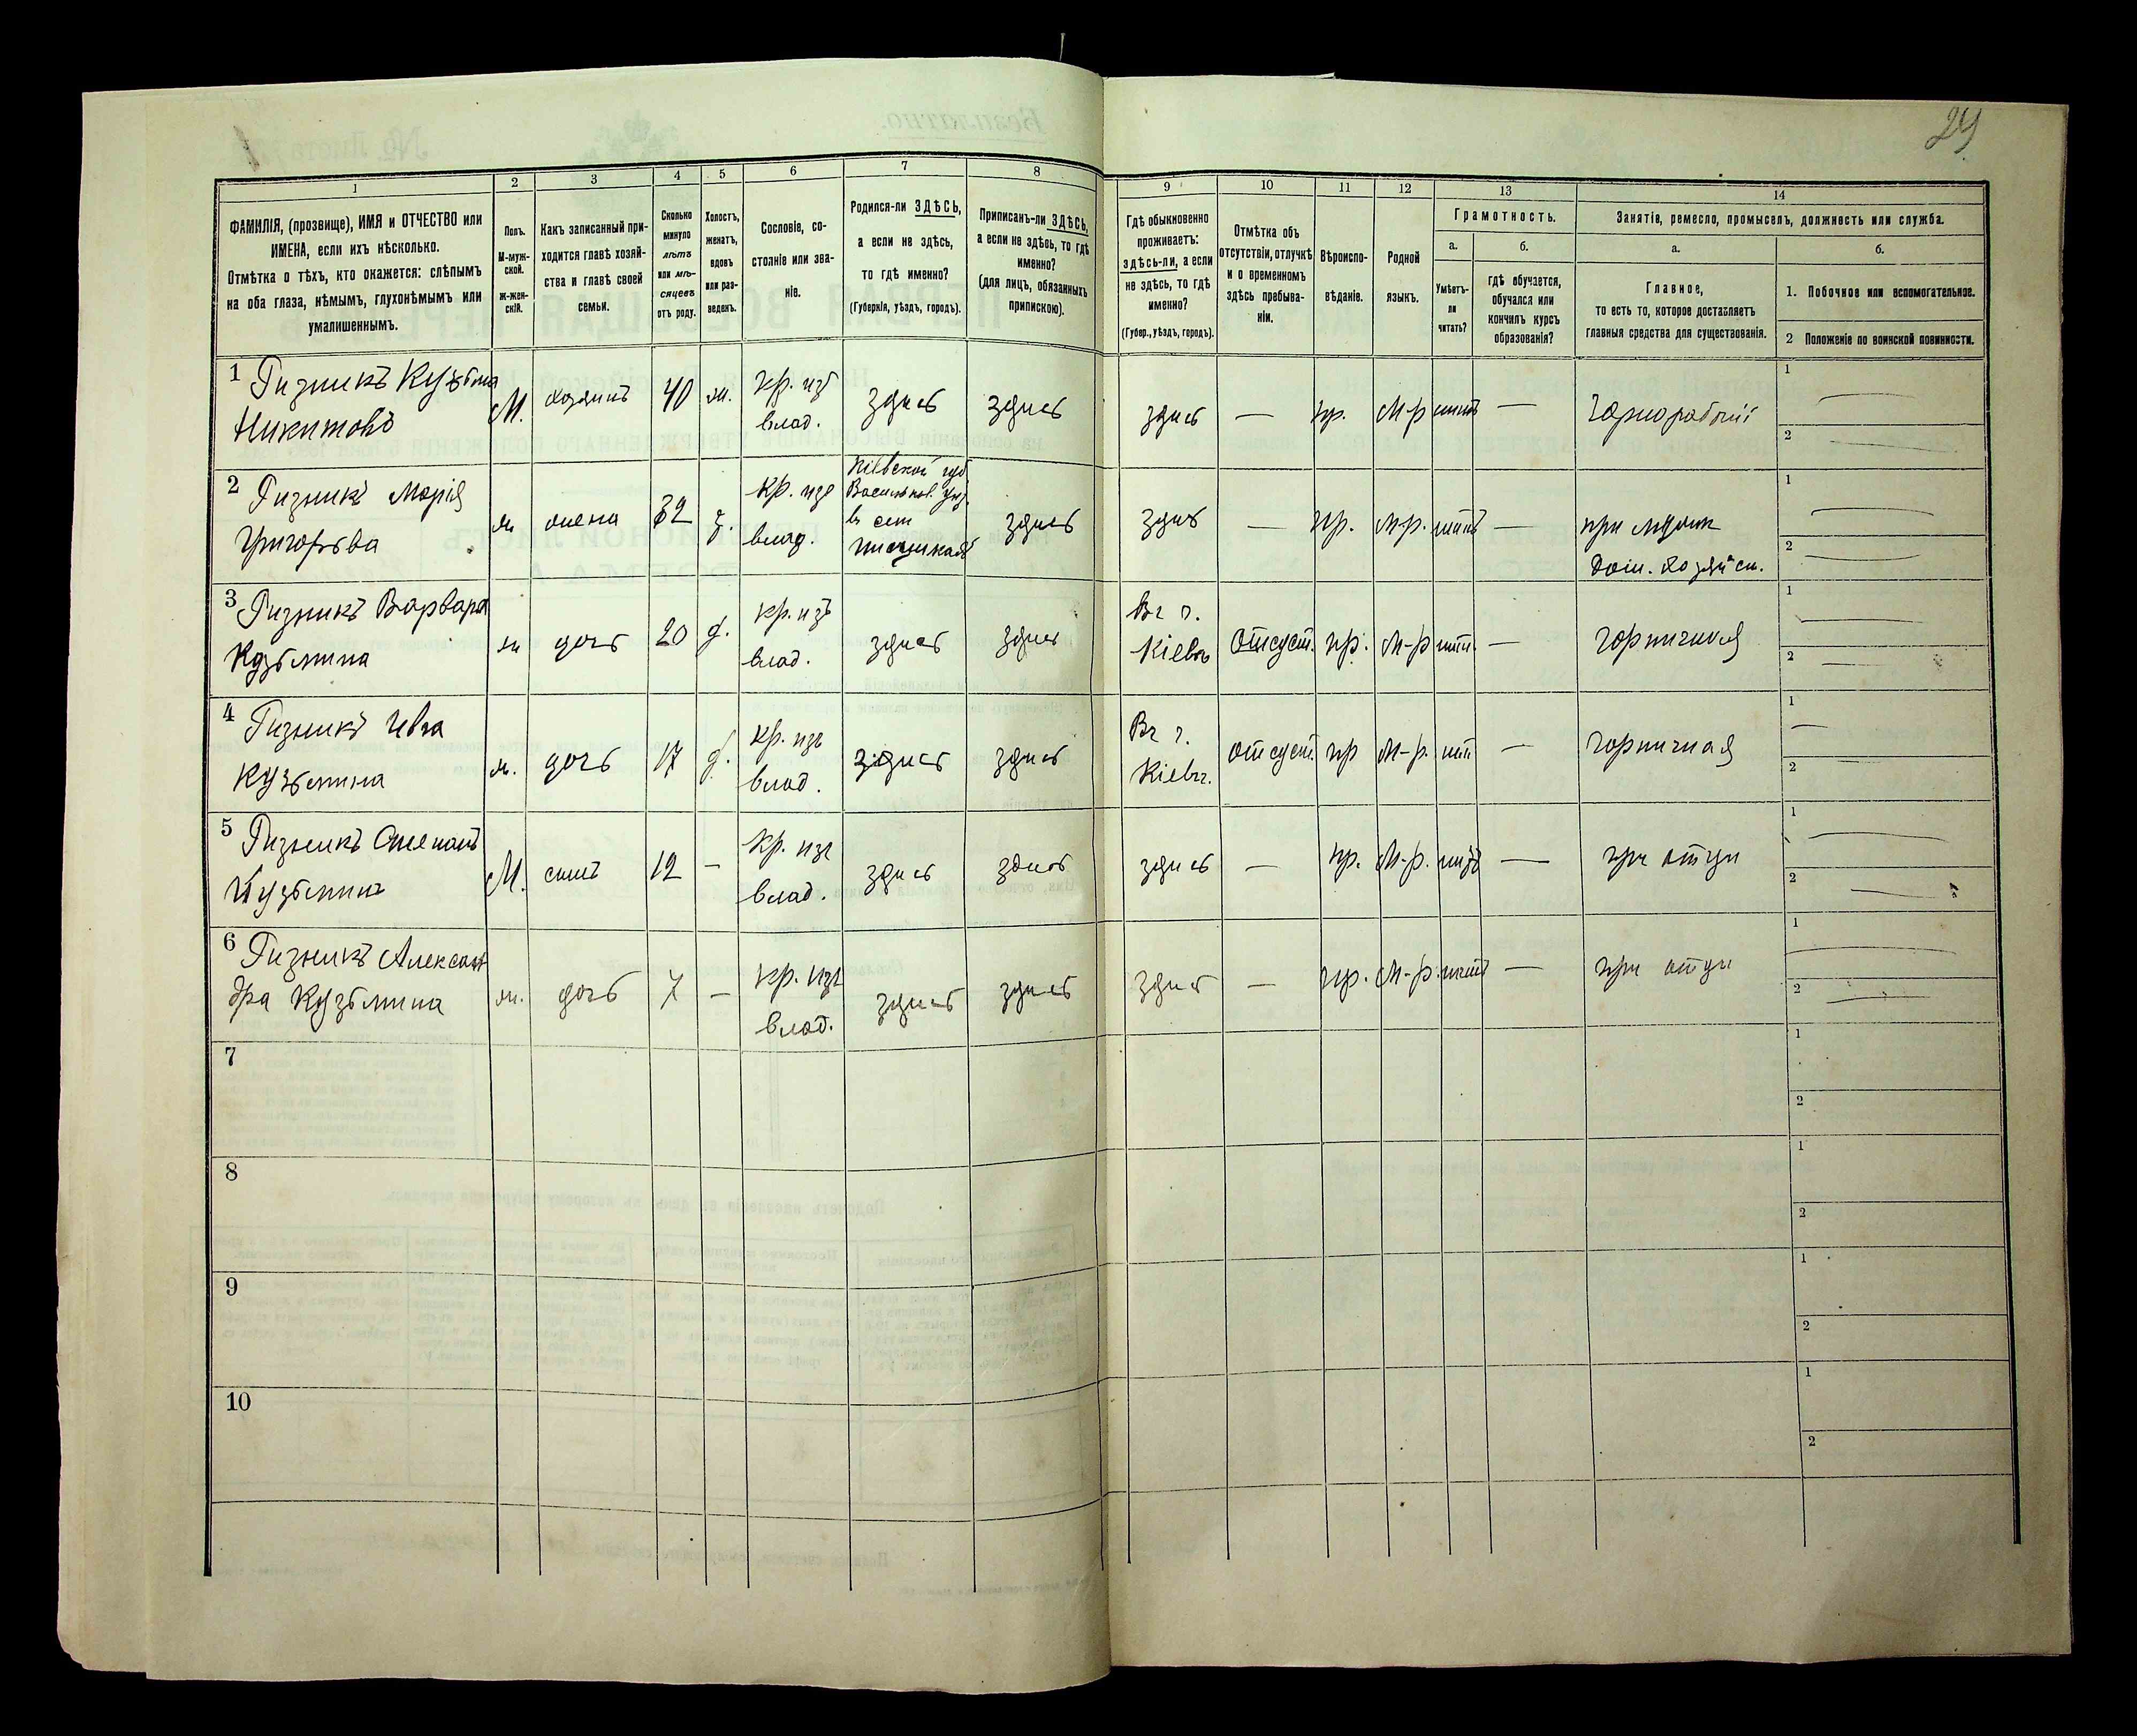 29
1
2
3
4
5
6
7
8
9
10
11
12
13
14
ФАМИЛІЯ, (прозвище), ИМЯ и ОТЧЕСТВО или
ИМЕНА, если ихъ нѣсколько.
Отмѣтка о тѣхъ, кто окажется: слѣпымъ
на оба глаза, нѣмымъ, глухонѣмымъ или
умалишеннымъ.
Полъ.
М-муж-
ской.
Ж-жен-
скій.
Какъ записанный при-
ходится главѣ хозяй-
ства и главѣ своей
семьи.
Сколько
минуло
лѣтъ
или мѣ-
сяцевъ
отъ роду.
Холостъ,
женатъ,
вдовъ
или раз-
веденъ.
Сословіе, со-
стояніе или зва-
ніе.
Родился-ли ЗДѢСЬ,
а если не здѣсь,
то гдѣ именно?
(Губернія, уѣздъ, городъ).
Приписанъ-ли ЗДѢСЬ,
а если не здѣсь, то гдѣ
именно?
(для лицъ, обязанныхъ
припискою).
Гдѣ обыкновенно
проживаетъ:
здѣсь-ли, а если
не здѣсь, то гдѣ
именно?
(Губер., уѣздъ, городъ).
Отмѣтка объ
отсутствіи, отлучкѣ
и о временномъ
здѣсь пребыва-
ніи.
Вѣроиспо-
вѣданіе.
Родной
языкъ.
Грамотность.
а.
Умѣетъ-
ли
читать?
б.
гдѣ обучается,
обучался или
кончилъ курсъ
образованія?
Занятіе, ремесло, промыселъ, должность или служба.
а.
Главное,
то есть то, которое доставляетъ
главныя средства для существованія.
б.
1. Побочное или вспомогательное.
2 Положеніе по воинской повинности.
1 Гизникъ Кузьма
Никитовъ
М.
хозяинъ
40
ж.
кр. изъ
влад.
здись
здись
здись
—
пр.
М-р
нитъ
—
чорнорабочій
1
2
2 Гизникъ Марія
Григорьва
ж
жена
32
з.
кр. изъ
влад.
Кіевской губ
Васильков. уѣз.
въ сел
здись
здись
—
пр.
М-р.
нитъ
—
при мужи
Дом. хозяйст.
1
2
3 Гизникъ Варвара
Кузьмина
ж
дочь
20
д.
кр. изъ
влад.
здись
здись
Въ г.
Кіевъ
Отсуст.
пр.
М-р
нит.
—
горничная
1
2
4 Гизникъ Ивга
Кузьмина
ж.
дочь
17
д.
кр. изъ
влад.
здись
здись
Въ г.
Кіевъ.
отсуст.
пр
М-р.
нит
—
горничная
1
2
5 Гизникъ Степанъ
Кузьминъ
М.
сынъ
12
—
кр. изъ
влад.
здись
здись
здись
—
пр.
М-р.
нитъ
—
при отци
1
2
6 Гизникъ Алексан
дра Кузьмина
ж.
дочь
7
—
кр. изъ
влад.
здись
здись
здись
—
пр.
М-р.
нитъ
—
при отци
1
2
7
1
2
8
1
2
9
1
2
10
1
2